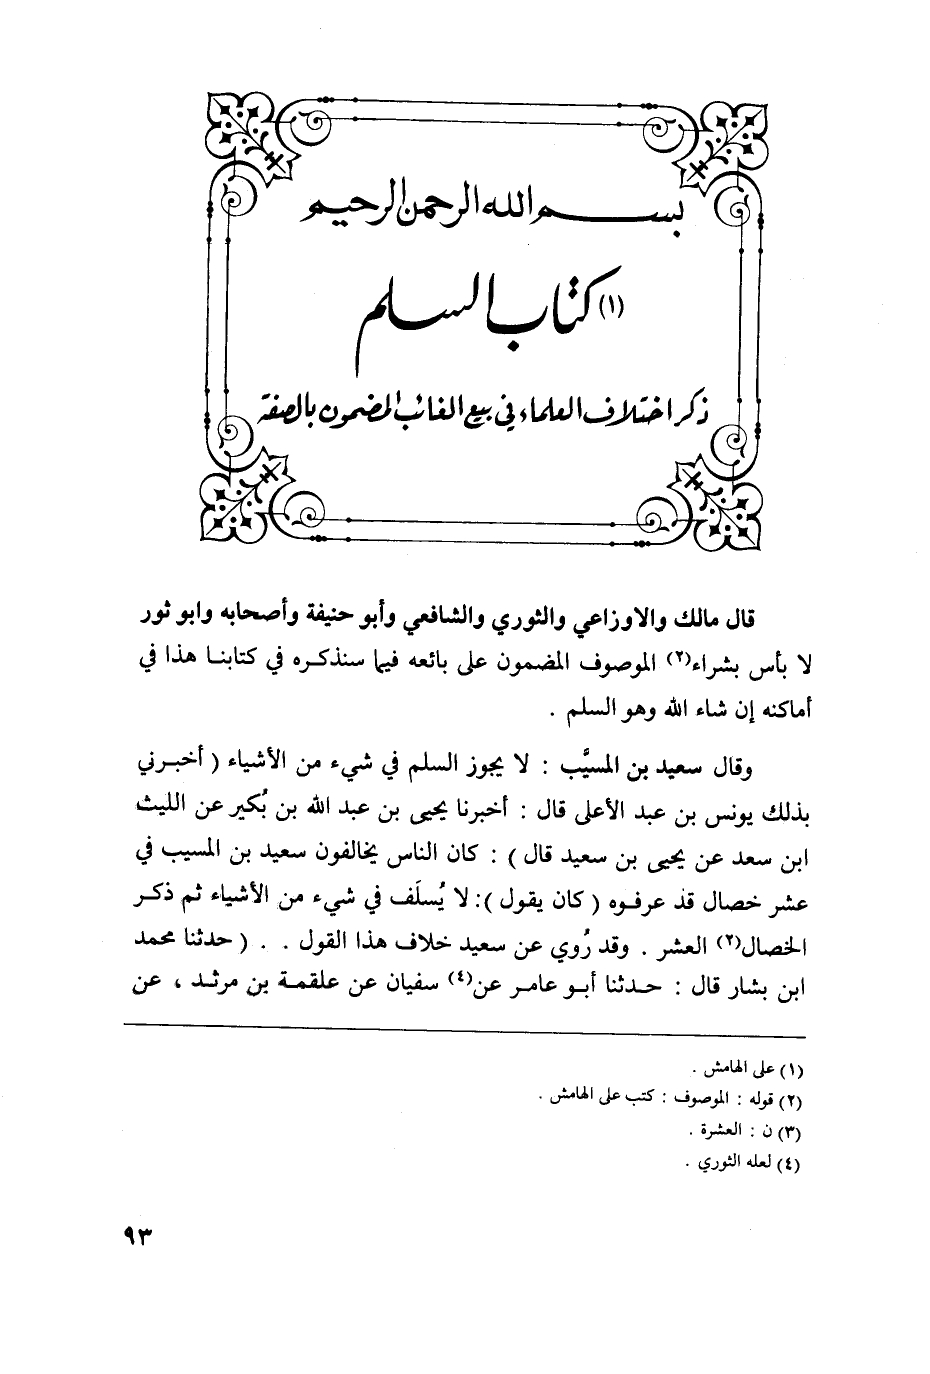 بسم الله الرحمن الرحيم
(١) كتاب السلم
ذكر اختلاف العلماء في بيع الغائب المضمون بالصفة
قال مالك والاوزاعي والثوري والشافعي وأبو حنيفة وأصحابه وابو ثور
لا بأس بشراء(٢) الموصوف المضمون على بائعه فيما سنذكره في كتابنا هذا في
أماكنه إن شاء الله وهو السلم .
وقال سعيد بن المسيَّب : لا يجوز السلم في شيء من الأشياء ( أخبرني
بذلك يونس بن عبد الأعلى قال : أخبرنا يحيى بن عبد الله بن بُكير عن الليث
ابن سعد عن يحيى بن سعيد قال ) : كان الناس يخالفون سعيد بن المسيب في
عشر خصال قد عرفوه ( كان يقول ): لا يُسلَف في شيء من الأشياء ثم ذكر
الخصال(٢) العشر . وقد رُوي عن سعيد خلاف هذا القول . . ( حدثنا محمد
ابن بشار قال : حدثنا أبو عامر عن(٤) سفيان عن علقمة بن مرثد ، عن
(١) على الهامش .
(٢) قوله : الموصوف : كتب على الهامش .
(٣) ن : العشرة .
(٤) لعله الثوري .
٩٣